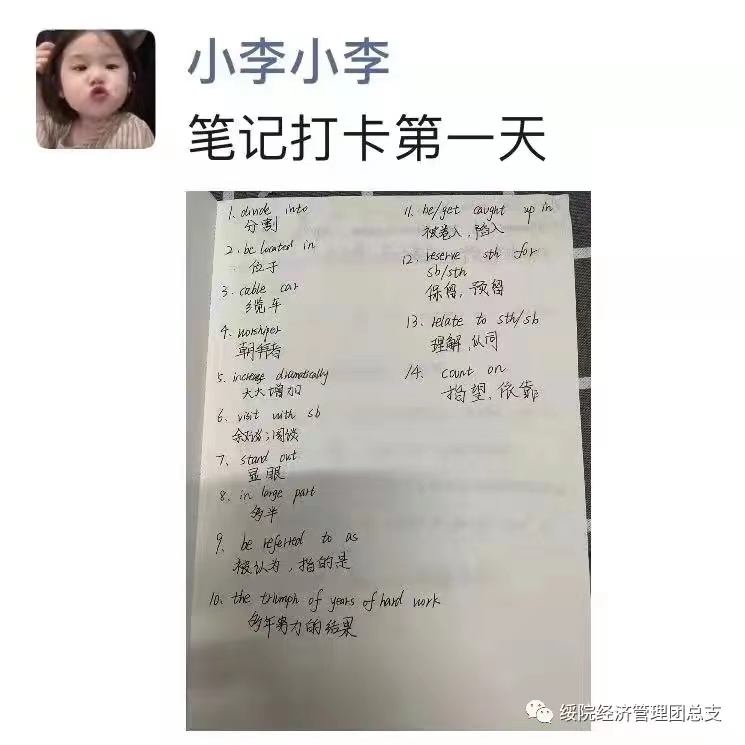 小李小李
笔记打卡第一天
1. divide into
分割
2. be located in
位于
3. cable car
缆车
4. worshiper
朝拜者
5. increase dramatically
大大增加
6. visit with sb
叙谈;闲谈
7. stand out
显眼
8. in large part
多半
9. be referred to as
被认为,指的是
10. the triumph of years of hard work
多年努力的结果
11. be/get caught up in
被卷入,陷入
12. reserve sth for
sb/sth
保留,预留
13. relate to sth/sb
理解,认同
14. count on
指望,依靠
绥院经济管理团总支